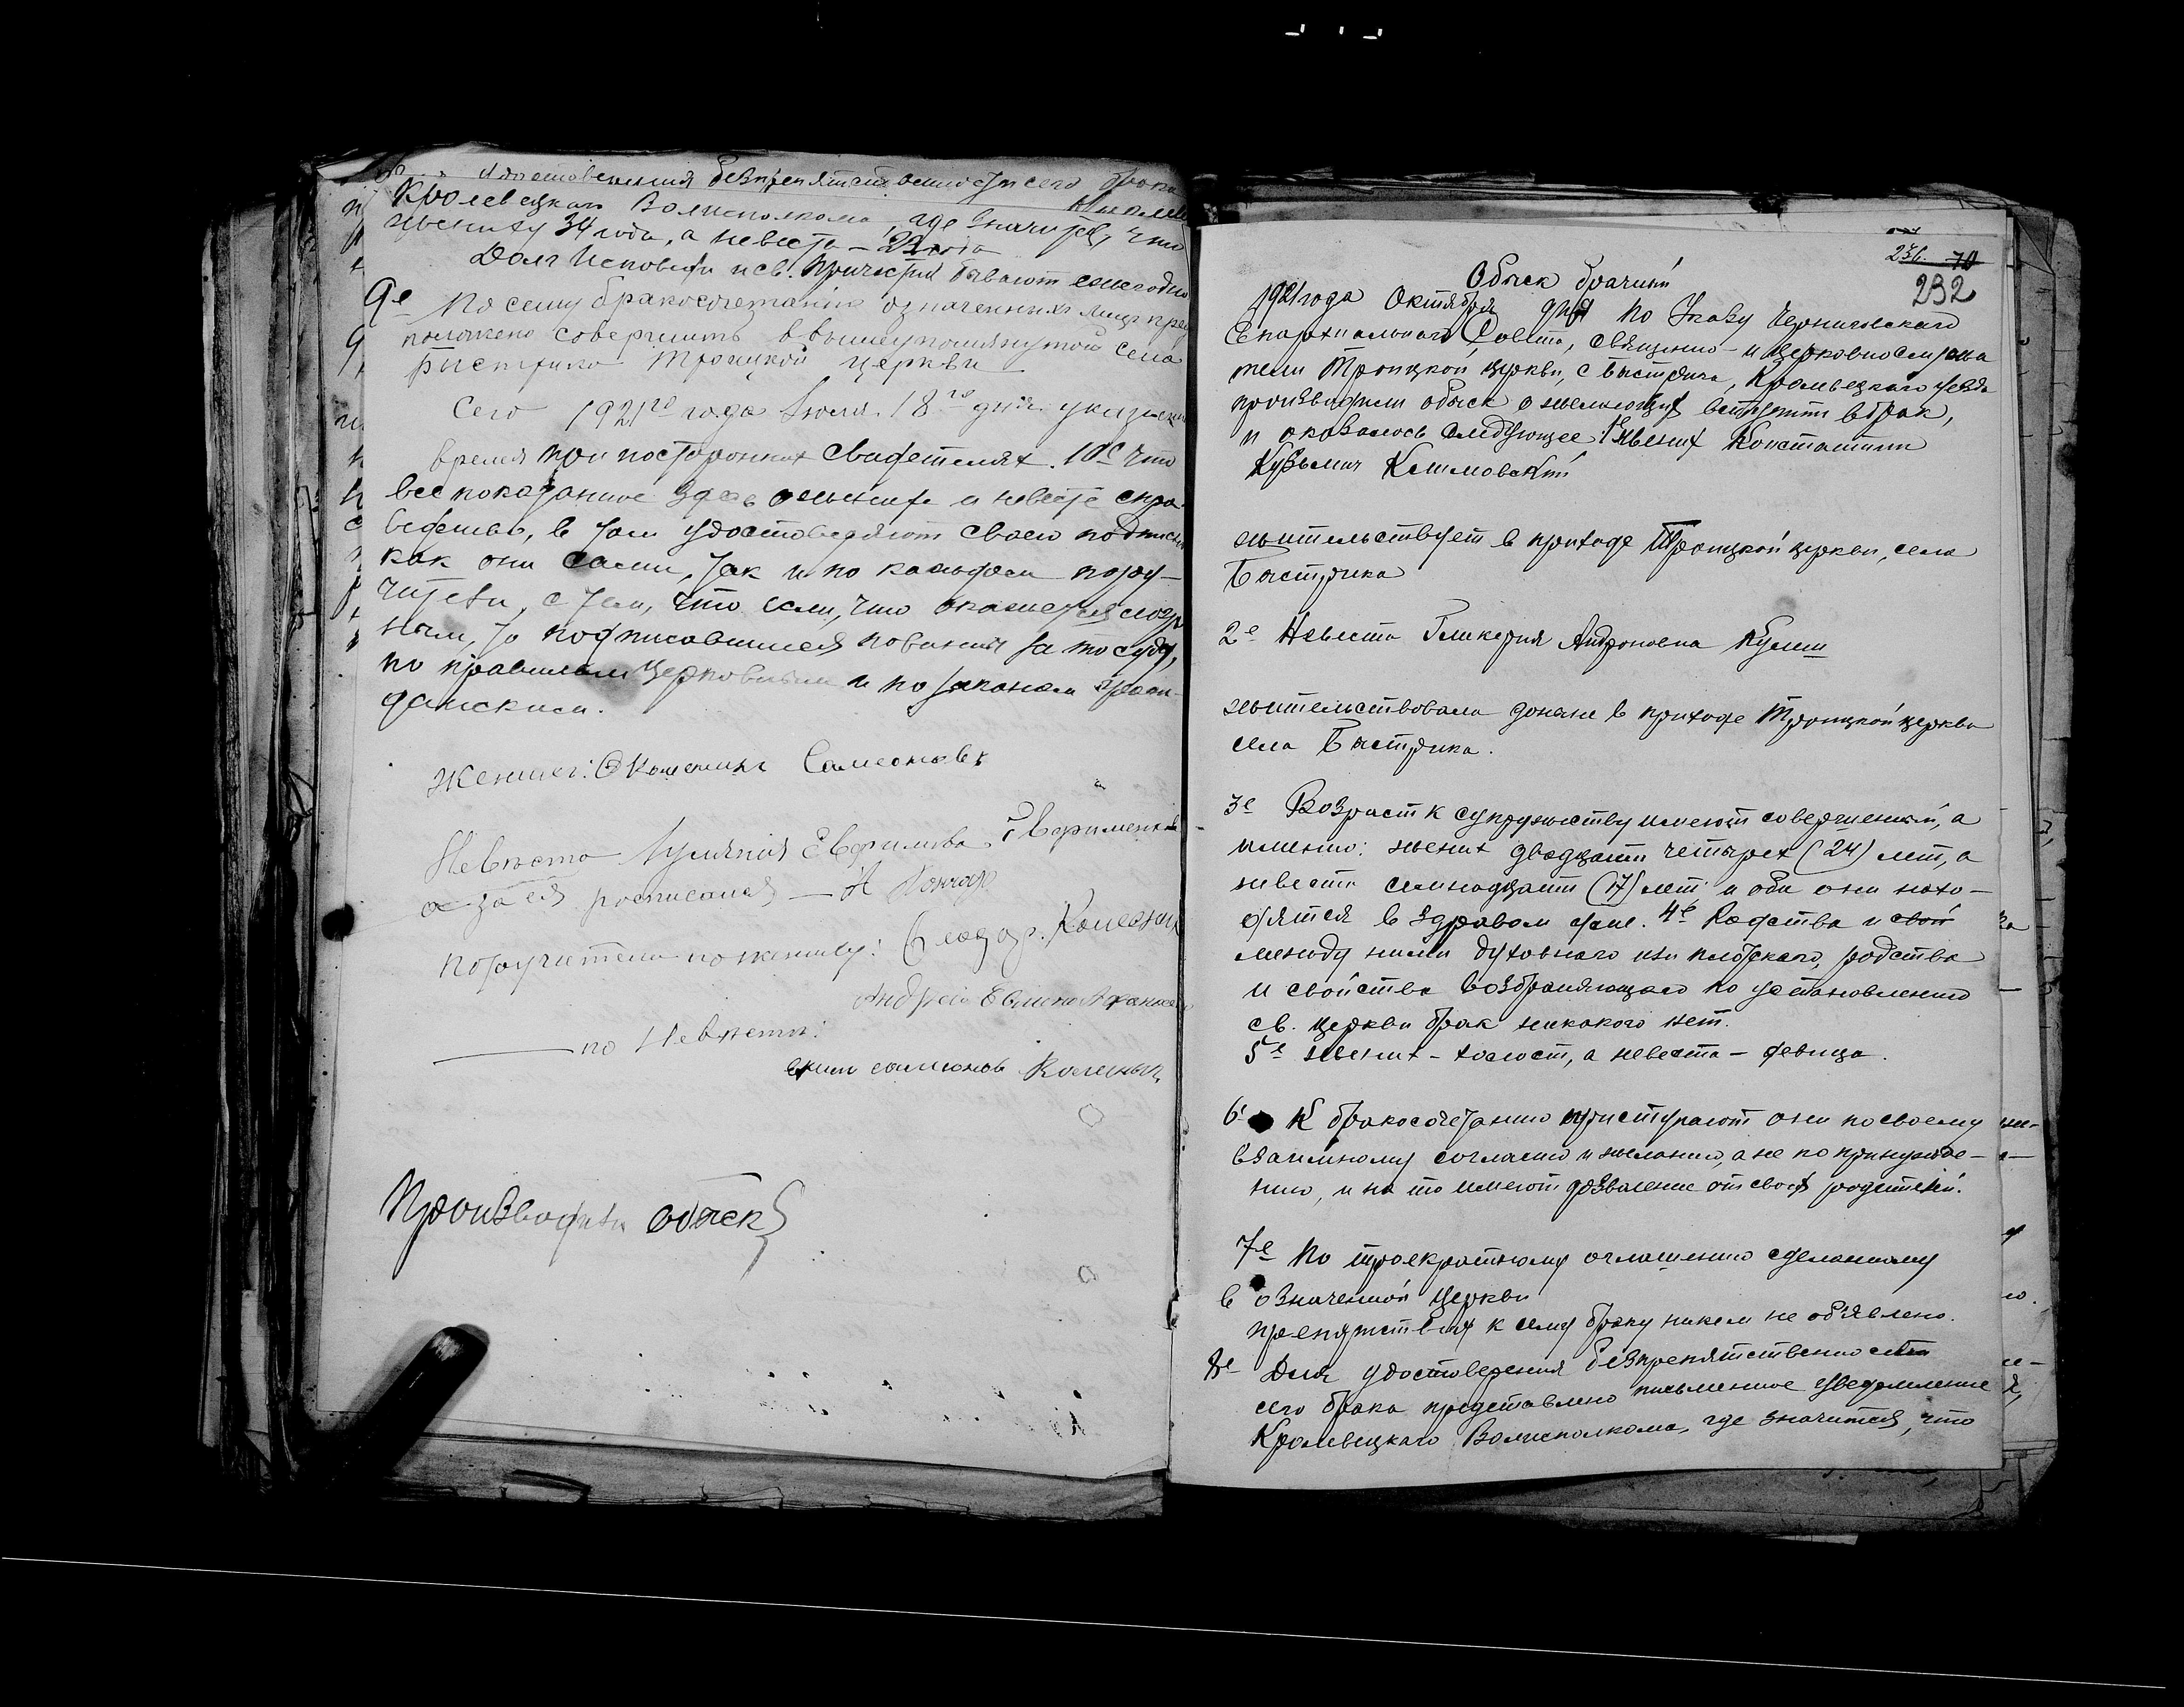 удостоверения безпрепятственности сего брака
Кролевецкаго Волисполкома, где значится, что
жениху 34 года, а невеста – 22 года
Долг Исповеди и св. Причастия бывают ежегодно
9е По сему бракосочетание означенных лиц пред
положено совершить в вышеупомянутой села
Быстрика Троицкой церкви
Сего 1921го года Июля 18го дня в указаное
время при посторонних свидетелях. 10е Что
все показанное здесь о женихе и невесте спра-
ведливо, в том удостоверяют своею подписью
как они сами, так и по каждом пору-
чители, с тем, что если, что окажется лож
ным, то подписавшиеся повинны за то суду,
по правилам церковным и по законам граж-
данским.
Жених: Самсоновъ
Невеста Евфимова
за ея росписался — А Гончар
поручители по жениху:
Андрей
— по Невесте:
самсонов
Производили обыск
236 70
232
Обыск брачный
1921 года Октября дня по Указу Черниговскаго
Епархиальнаго Совета, священно- и церковнослужи
тели Троицкой церкви, с Быстрика, Кролевецкаго уезда
производили обыск о желающих вступить в брак,
и оказалось следующее: 1е Жених Константин
Кузьмич Климовский
жительствует в приходе Троицкой церкви, села
Быстрика
2е Невеста Гликерия Андроновна Кулеш
жительствовала доныне в приходе Троицкой церкви
села Быстрика.
3е Возраст к супружеству имеют совершенный, а
именно: жених двадцати четырех (24) лет, а
невеста семнадцати (17) лет и оба они нахо-
дятся в здравом уме. 4е Родства и свой
между ними духовного или плотского, родства
и свойства возбраняющаго по установлению
св. церкви брак никакого нет.
5е жених – холост, а невеста – девица.
6е К бракосочетанию приступают они по своему
взаимному согласию и желанию, а не по принужде-
нию, и на то имеют дозволение от своих родителей.
7е По троекратному оглашению сделанному
в означенной церкви
препятствия к сему браку никем не объявлено.
8е Для удостоверения безпрепятственности
сего брака представлено письменное уведомление
Кролевецкаго Волисполкома, где значится, что